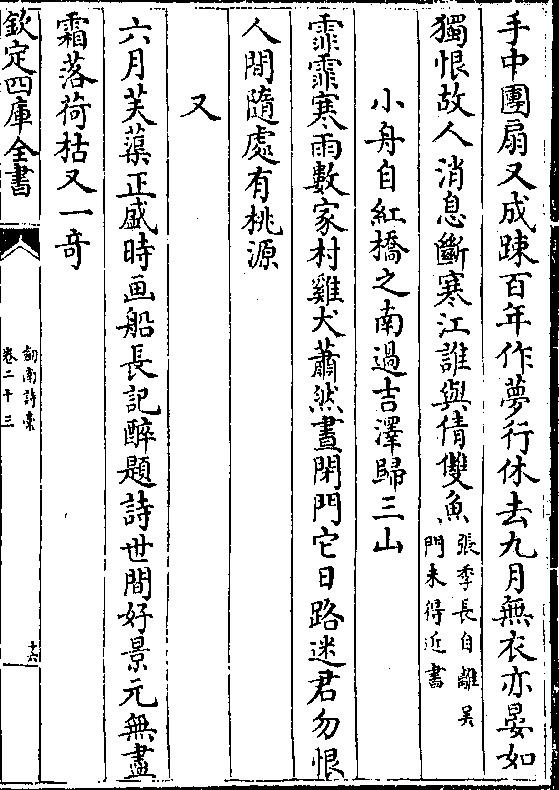 手中團扇又成踈百年作夢行休去九月無衣亦晏如
獨恨故人消息斷寒江誰與倩雙魚張季長自離吳
門未得近書
小舟自紅橋之南過吉澤歸三山
霏霏寒雨數家村雞犬蕭然晝閉門它日路迷君勿恨
人間隨處有桃源
又
六月芙蕖正盛時画船長記醉題詩世間好景元無盡
霜落荷枯又一竒
欽定四庫全書
劒南詩槀
卷二十三
十六